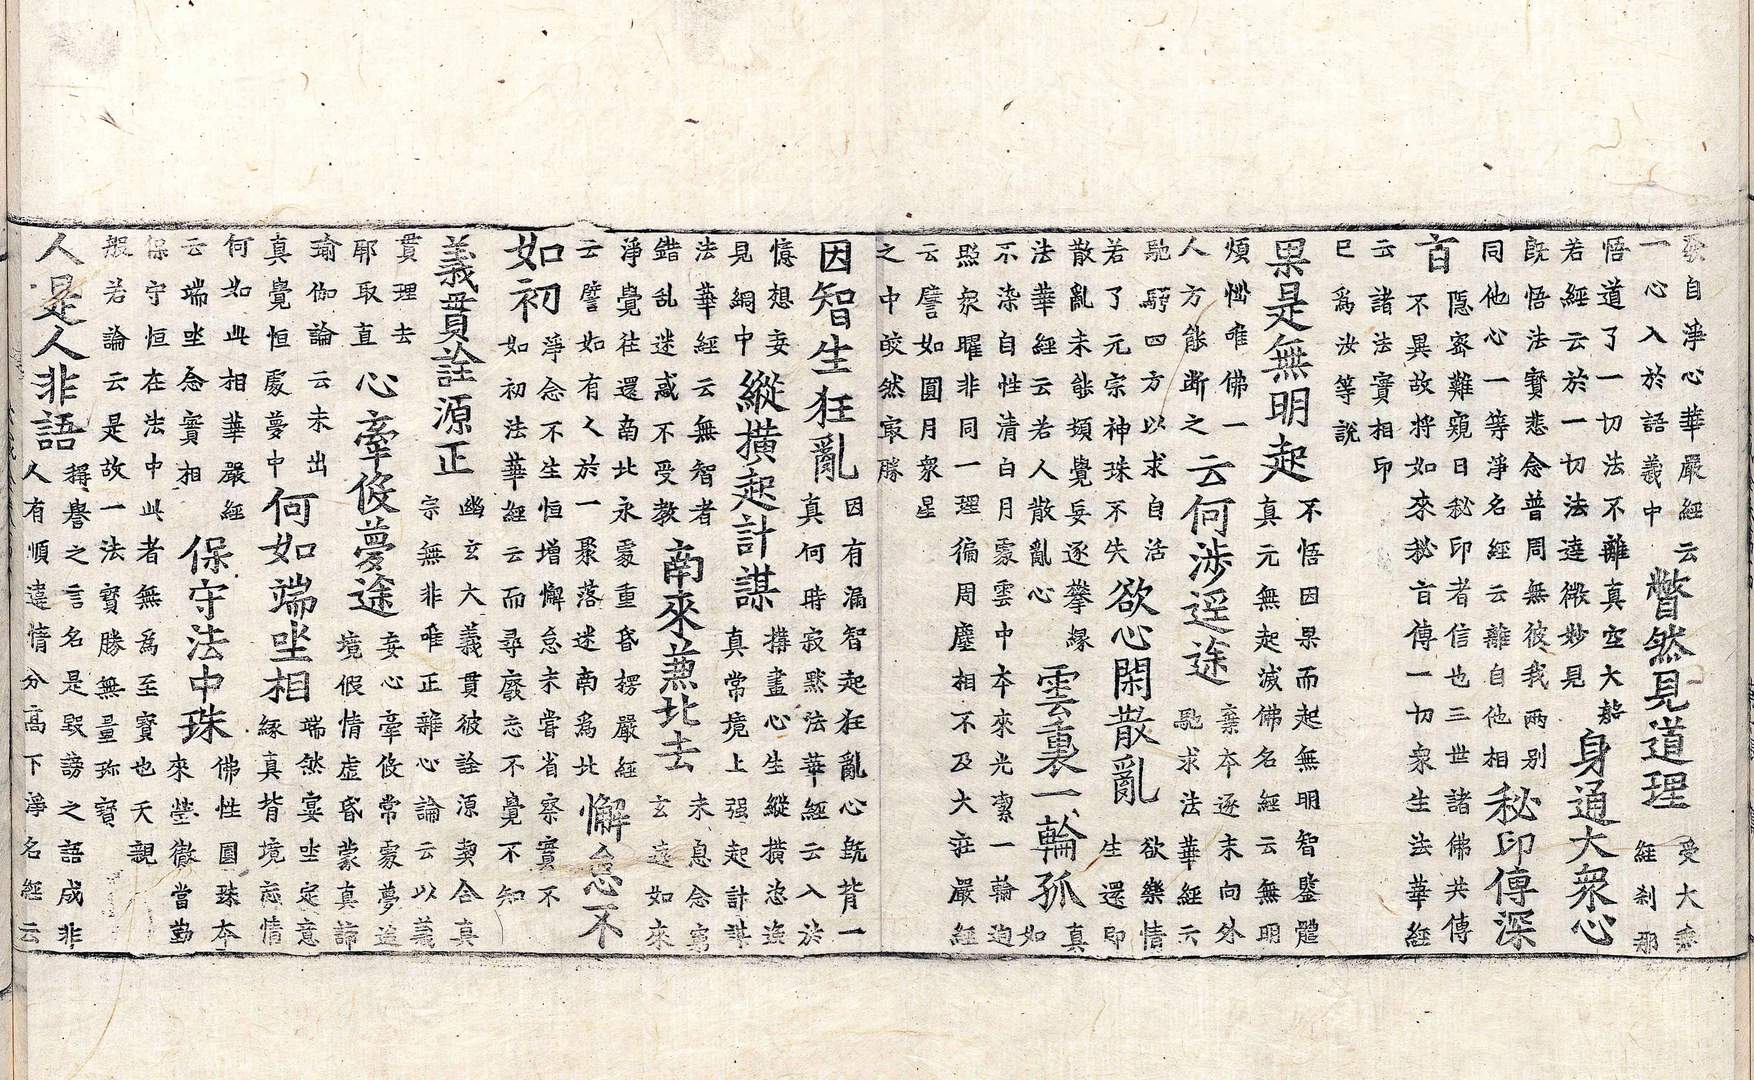 發自淨心華嚴經云
一心入於語義中
瞥然見道理
受大乘
經剎那
悟道了一切法不離真空大般
若經云於一切法達微妙見
身通大衆心
旣悟法實悲念普周無彼我兩别
同他心一等淨名經云離自他相
秘印傳深
旨
隱密難窺曰秘印者信也三世諸佛共傳
不異故將如來秘旨傳一切衆生法華經
云諸法實相印
已爲汝等說
果是無明起
不悟因果而起無明智鑒體
真元無起滅佛名經云無明
煩惱唯佛一
人方能斷之
云何涉逕途
棄本逐末向外
馳求法華經云
馳騁四方以求自活
若了元宗神珠不失
欲心閑散亂
欲樂情
生還即
散亂未能頓覺妄逐攀緣
法華經云若人散亂心
雲裏一輪孤
真
如
不染自性清白月處雲中本來光潔一輪逈
照衆曜非同一理徧周塵相不及大莊嚴經
云譬如圓月衆星
之中皎然最勝
因智生狂亂
因有漏智起狂亂心旣背一
真何時寂默法華經云入於
憶想妄
見網中
縱橫起計謀
搆畫心生縱橫恣
真常境上强起計謀
法華經云無智者
錯乱迷惑不受教
南來兼北去
未息念
玄遠如來
淨覺往還南北永處重昏楞嚴經
云譬如有人於一聚落迷南爲北
懈怠不
如初
淨念不生恒增懈怠未嘗省察實不
如初法華經云而尋廢忘不覺不知
義貫詮源正
幽玄大義貫彼詮源契合真
宗無非唯正離心論云以義
貫理去
耶取直
心牽倐夢途
妄心牽倐常處夢途
境假情虛昏蒙真諦
瑜伽論云未出
真覺恒處夢中
何如端坐相
端然宴坐定意
緣真背境忘情
何如此相華嚴經
云端坐念實相
保守法中珠
佛性圓珠本
來瑩徹當勤
保守恒在法中此者無爲至寶也天親
般若論云是故一法寶勝無量珎寶
人是人非語
稱譽之言名是毀謗之語成非
人有順違情分高下淨名經云